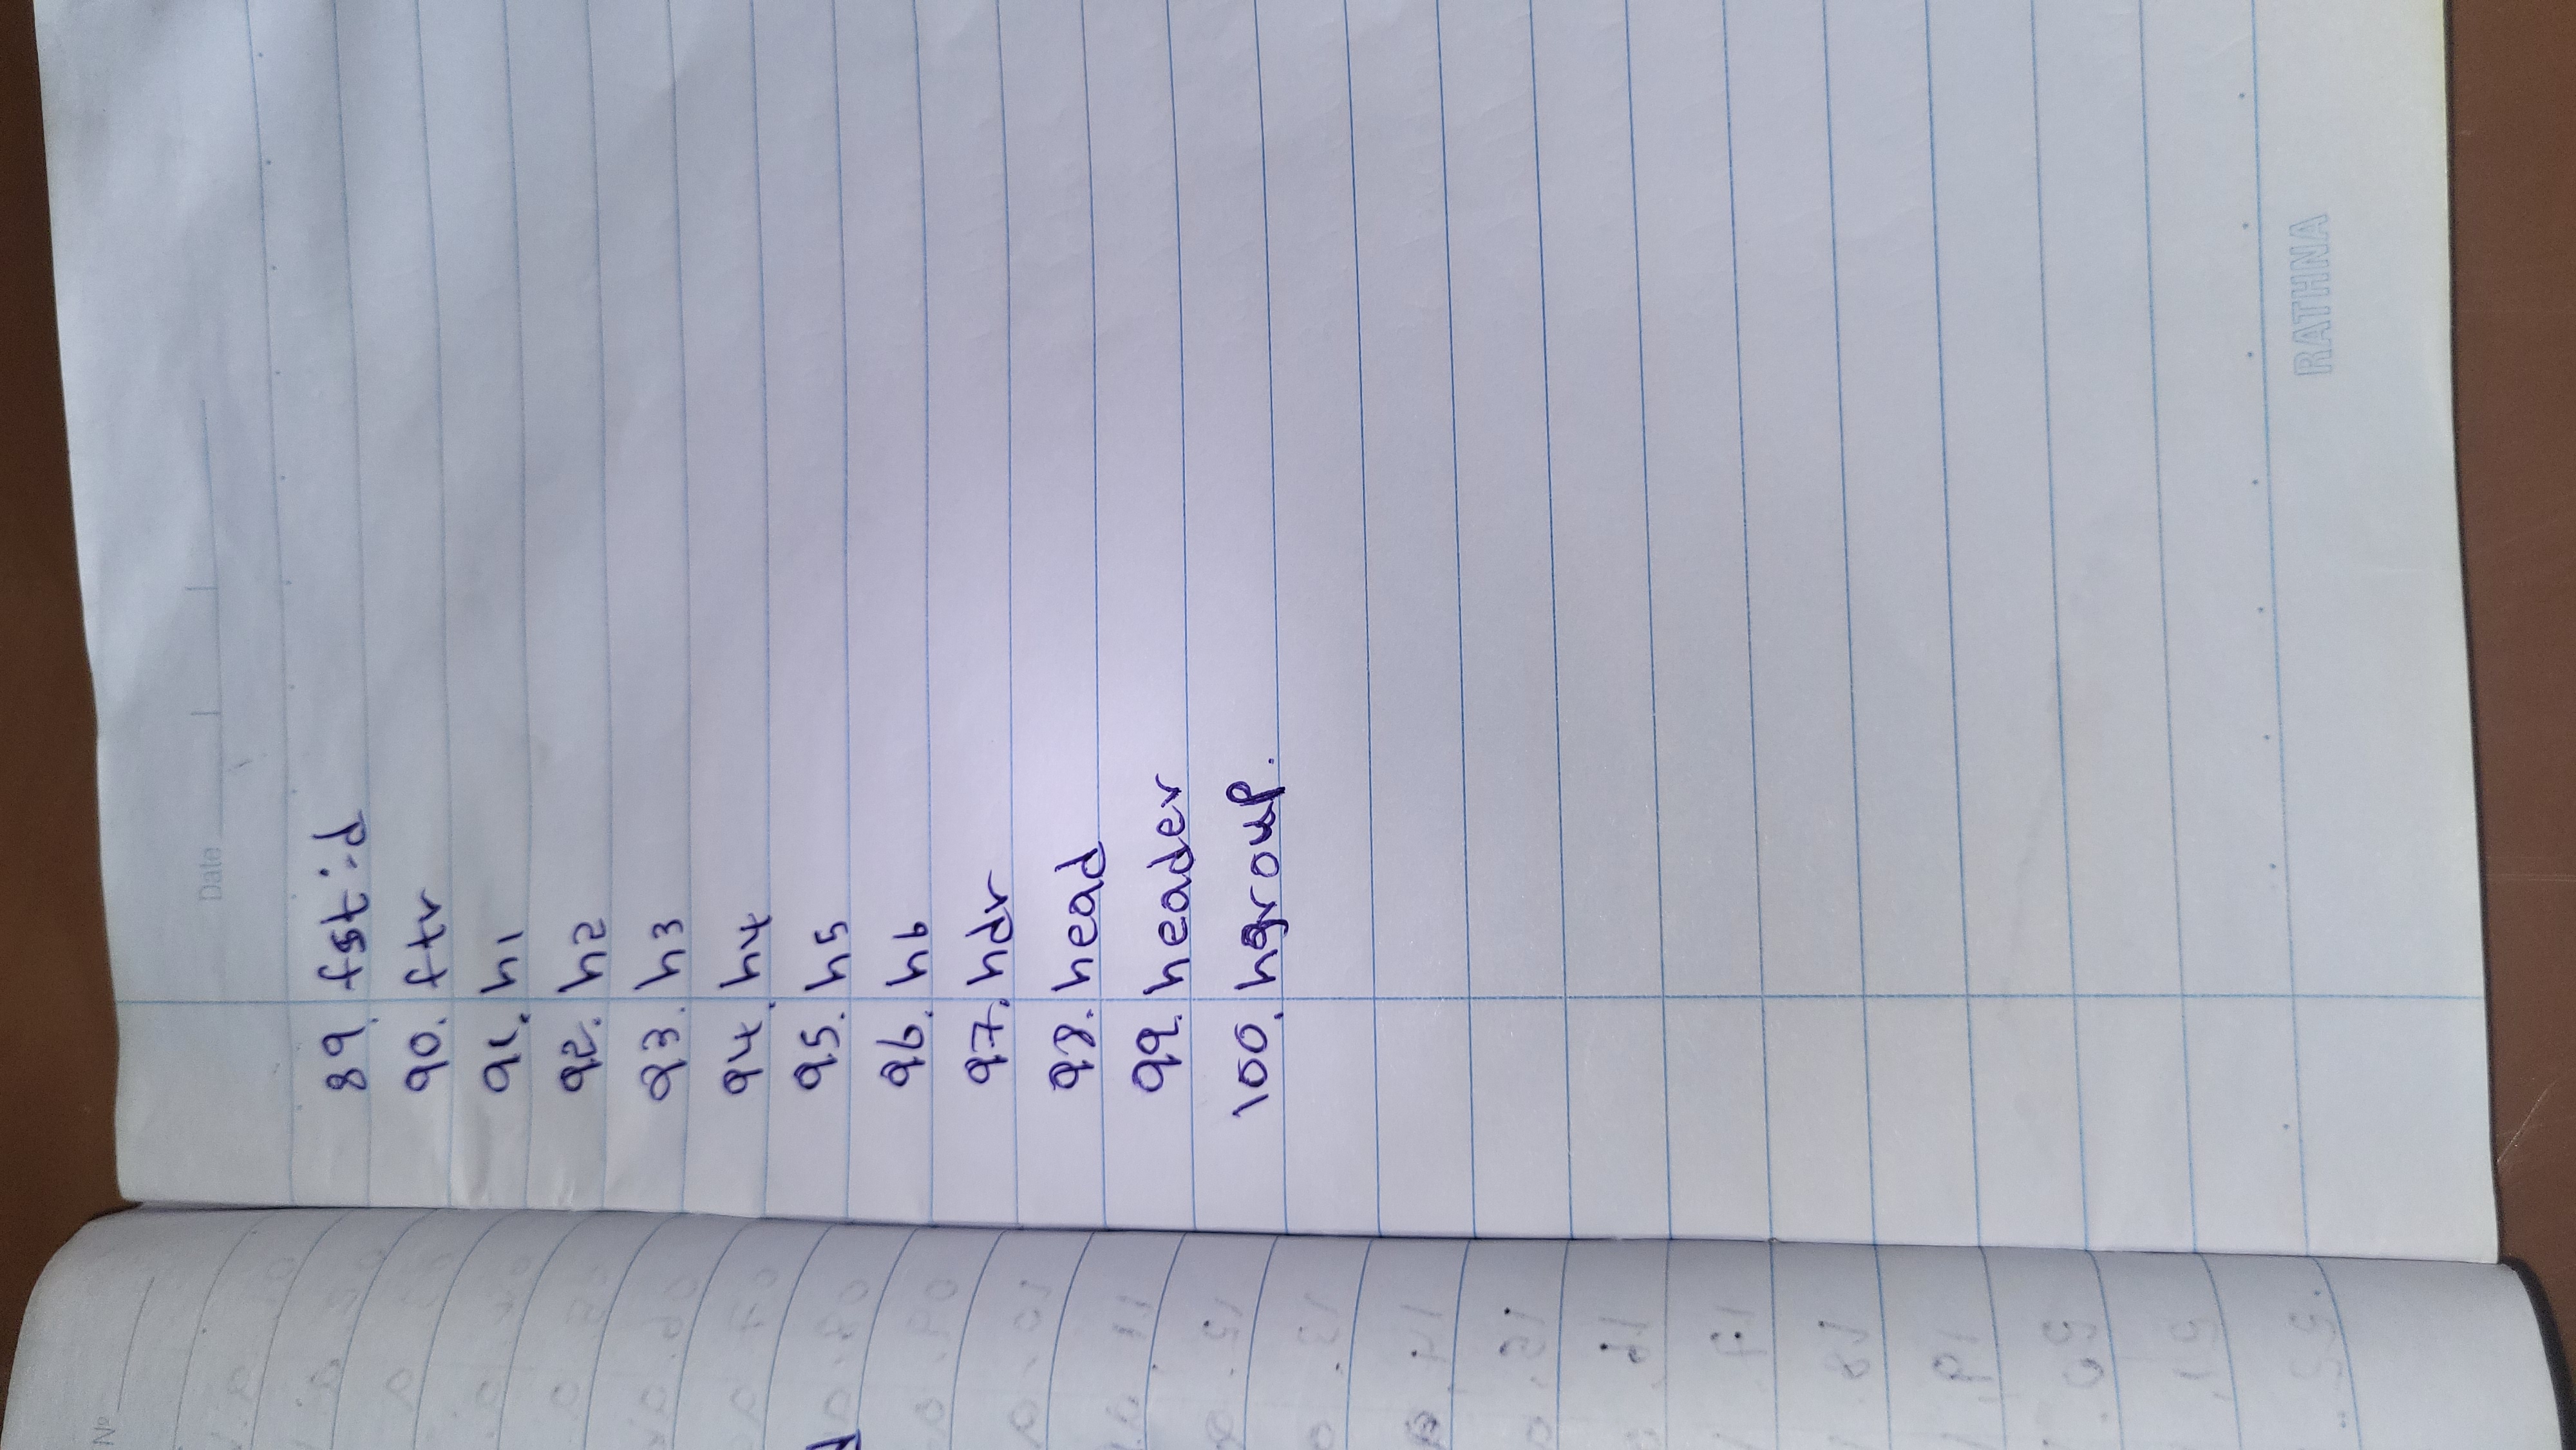 No
Date
89. fst:d
90. ftr
91. h1
92. h2
93. h3
94. h4
95. h5
96. h6
97. hdr
98. head
99. header
100. hgroup.
RATHNA